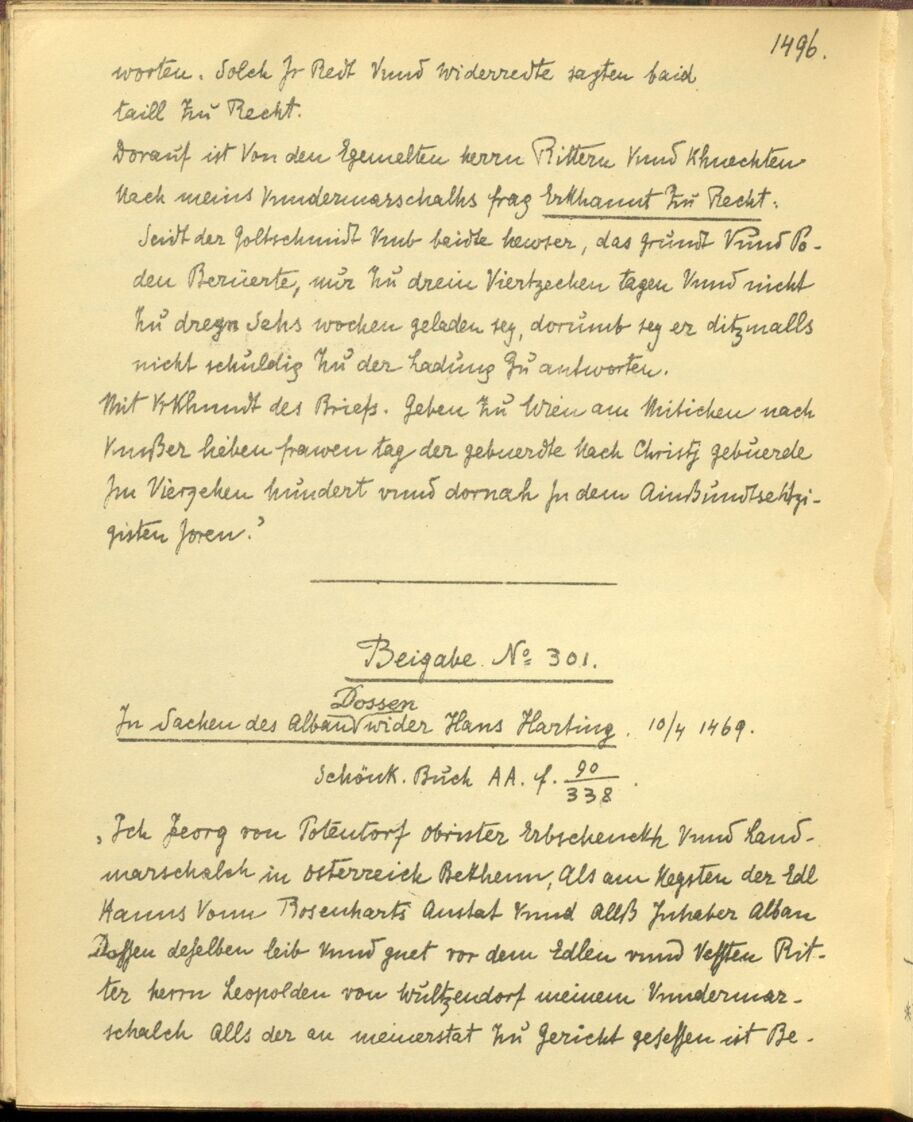 1496.
worten. Solch Jr Redt Vnnd widerredte sagten baid
taill Zu Recht.
Dorauf ist Von den Egemelten herrn Rittern Vnnd Khnechten
Nach meins Vnndermarschalhs frag Erkhannt Zu Recht:
Seidt der Goltschmidt Vmb baidte hewser, das grundt Vnnd Po-
den Beruerte, nur Zu drein Viertzechen tagen Vnnd nicht
Zu dreyn Sehs wochen geladen sey, dorumb sey er ditzmalls
nicht schuldig Zu der Ladung Zu antworten.
Mit Vrkhundt des Briefs. Geben Zu Wien am Mitichen nach
Vnnßer lieben frawen tag der gebuerdte Nach Christj gebuerde
Jm Vierzehen hundert vnnd dornah Jn dem Ainßundtsehtzi-
gisten Joren."
Beigabe No 301.
Dossen
In Sachen des Alban wider Hans Harting. 10/4 1469.
Schönk. Buch AA. f. 90/338.
"Ich Jeorg von Potentorf obrister Erbschenckh Vnnd Land-
marschalch in Osterreich Bekhenn, Als am Negsten der Edl
Hanns Vonn Rosenharts Anstat Vnnd Allß Inhaber Alban
Dossen deßelben leib Vnnd guet vor dem Edlen vnnd Vessten Rit-
ter herrn Leopolden von Wultzendorf meinem Vnndermar-
schalch Alls der an meinerstat Zu Gericht geseßen ist Be-